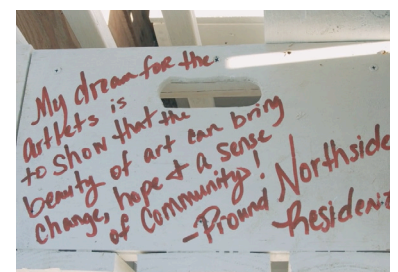 My dream for the
art lots is
to show that the
beauty of art can bring
change, hope & a sense
of Community!
-Pround Northside
Resident